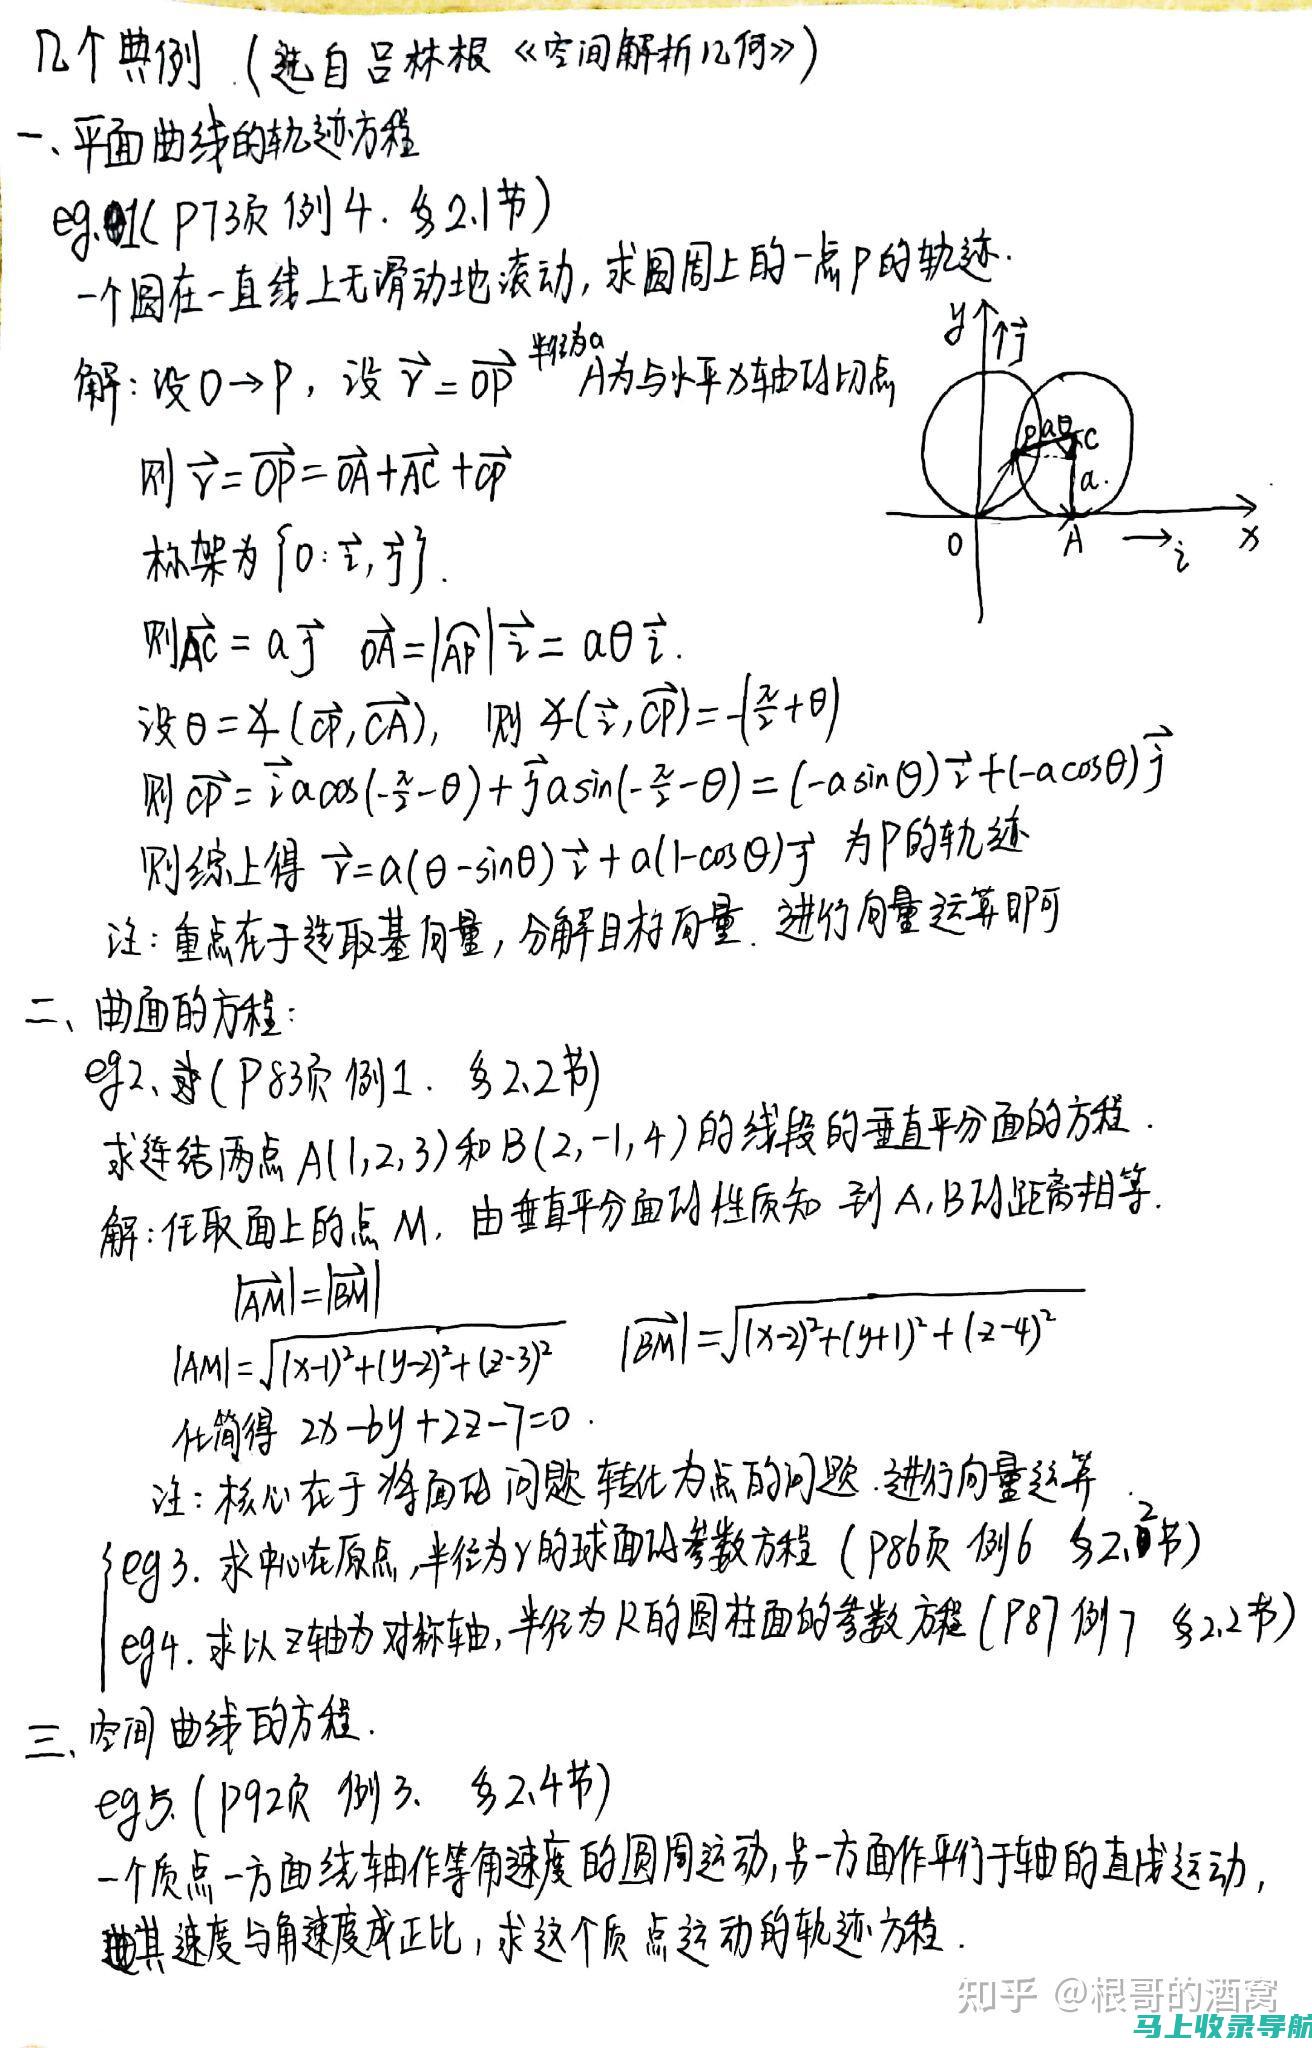 几个典例.(选自吕林根《空间解析几何》)
一、平面曲线的轨迹方程
eg.1(P73页 例4. §2.1节)
一个圆在一直线上无滑动地滚动,求圆周上的一点P的轨迹.
解:设O→P,设 r⃗=OP⃗ 半径为a A为与水平x轴的切点
则 r⃗=OP⃗=OA⃗+AC⃗+CP⃗
标架为{O:i⃗,j⃗}.
则AC⃗=aj⃗ OA⃗=|AP⌒|i⃗=aθi⃗.
设θ=∡(CP⃗,CA⃗), 则∡(i⃗,CP⃗)=-(π/2+θ)
则CP⃗=i⃗acos(-π/2-θ)+j⃗asin(-π/2-θ)=(-asinθ)i⃗+(-acosθ)j⃗
则综上得 r⃗=a(θ-sinθ)i⃗+a(1-cosθ)j⃗ 为P的轨迹
注:重点在于选取基向量,分解目标向量.进行向量运算即可
y
j⃗
P aθ C
a.
O A i x
二、曲面的方程:
eg2、(P83页 例1. §2.2节)
求连结两点A(1,2,3)和B(2,-1,4)的线段的垂直平分面的方程.
解:任取面上的点M, 由垂直平分面的性质知 到A,B的距离相等.
|AM⃗|=|BM⃗|
|AM|=√((x-1)²+(y-2)²+(z-3)²) |BM⃗|=√((x-2)²+(y+1)²+(z-4)²)
化简得 2x-6y+2z-7=0.
注:核心在于将面的问题转化为点的问题.进行向量运算.
eg3. 求中心在原点,半径为r的球面的参数方程(P86页 例6 §2.2节)
eg4. 求以z轴为对称轴,半径为R的圆柱面的参数方程(P87 例7 §2.2节)
三、空间曲线的方程.
eg5.(P92页 例3、 §2.4节)
一个质点一方面绕轴作等角速度的圆周运动,另一方面作平行于轴的直线运动,
其速度与角速度成正比,求这个质点运动的轨迹方程.
知乎 @根哥的酒窝
马上收录导航